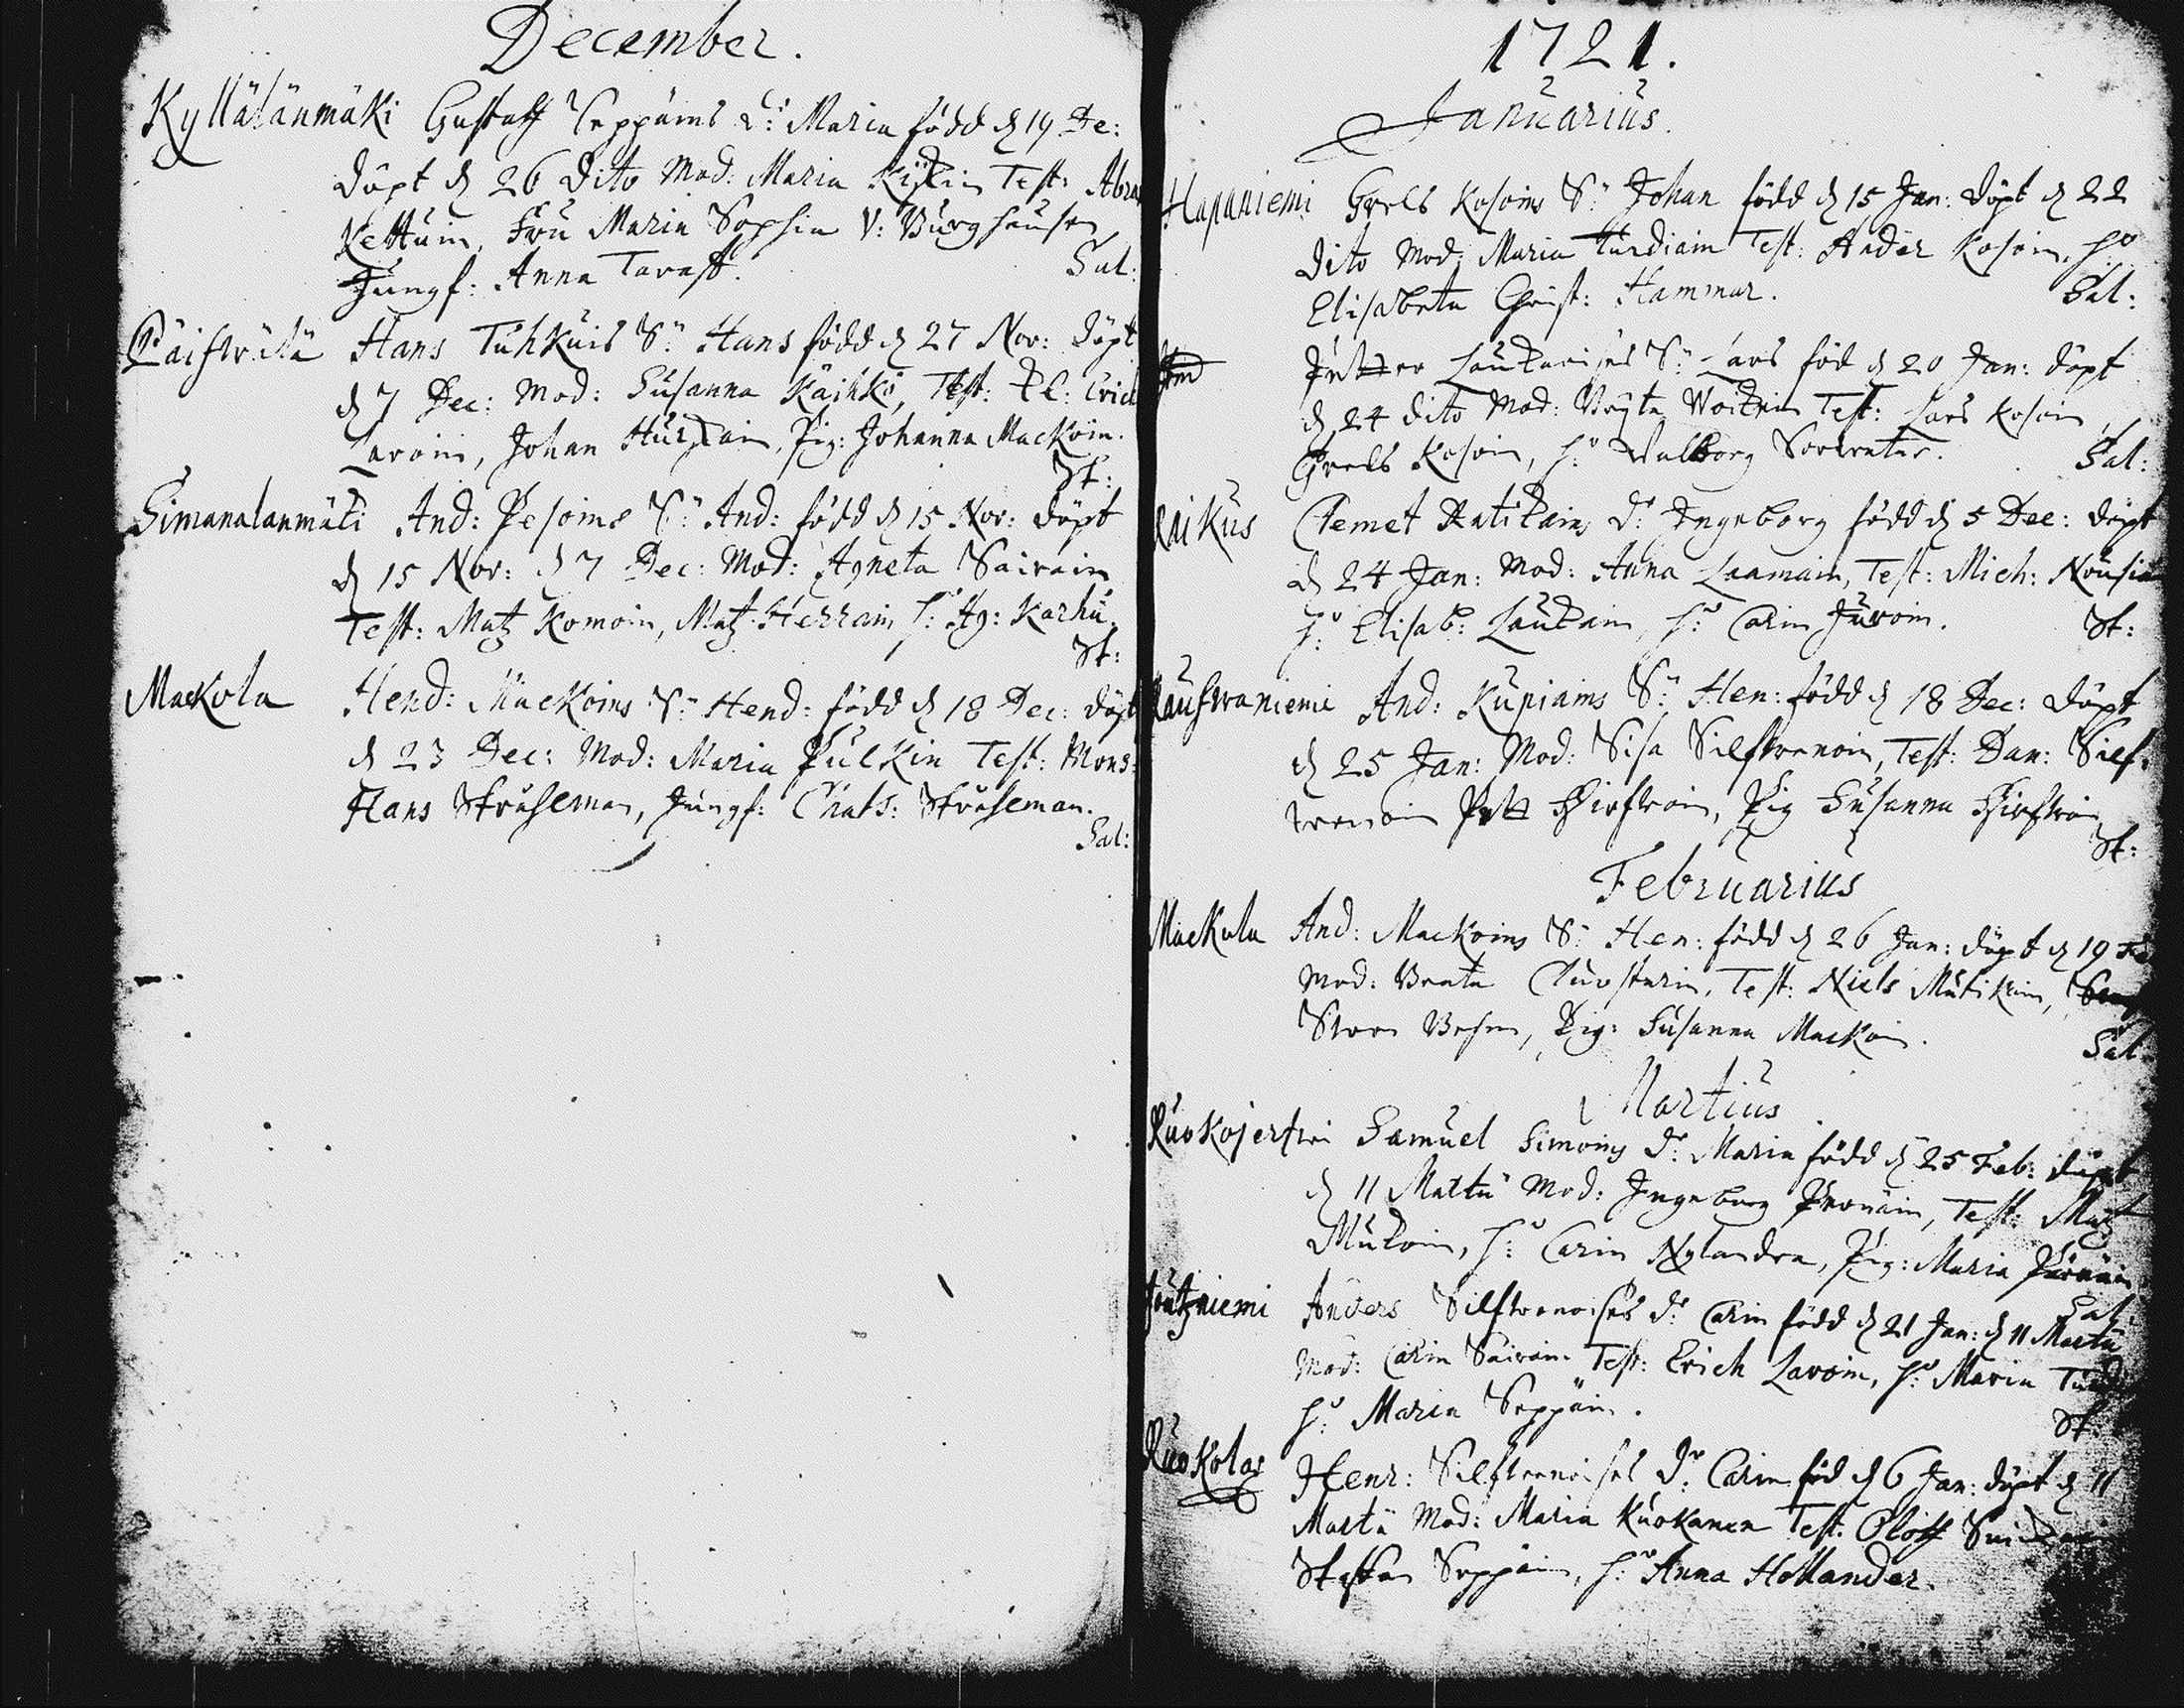 December.
Kyllälänmäki Gustaff Seppäins D: Maria född d 19 De:
döpt d 26 Dito Mod: Maria Test: Abra
Kettuin, Fru Maria Sophia V: Burghausen
Jungf: Anna Tavast.
Sal:
Hans Tuhkuis S: Hans född d 27 Nov: döpt
d 7 Dec: Mod: Susanna Kaihko, Test: Erich
Lavoin, Johan Pig: Johanna Mackoin.
St:
Simanalanmäki And: Pesoins S: And: född d 15 Nov: döpt
d 15 Nov: d 7 Dec: Mod: Agneta Sairain
Test: Matz Komoin, Matz Herrain, h: Ag: Karhu.
St:
Mackola Hend: Mackoins S: Hend: född d 18 Dec: döpt
d 23 Dec: Mod: Maria Pulkin Test: Mons:
Hans Struseman, Jungf: Chats: Struseman.
Sal:
1721.
Januarius.
Hapaniemi Grels Kosoins S: Johan född d 15 Jan: döpt d 22
Dito Mod: Maria Turdiain Test: Ander Kosoin, h:
Elisabeta Christ: Hammar.
Sal:
Petter S: Lars föd d 20 Jan: döpt
d 24 dito Mod: Bryta Test: Lars Kosoin,
Grels Kosoin, h: Walborg
Sal:
Clemet Ratikain D: Ingeborg född d 5 Dec: döpt
d 24 Jan: Mod: Anna Laamain, Test: Mich: Nousia
h: Elisab: Laukain, h: Carin Juvoin.
St:
Rauhwaniemi And: Kupiains S: Hen: född d 18 Dec: döpt
d 25 Jan: Mod: Lisa Silfwenoin, Test: Dan: Silf-
wenoin Pett Hirfwoin, Pig Susanna Hirfwoin
St:
Februarius
Mackula And: Mackoins S: Hen: född d 26 Jan: döpt d 19 Fe
Mod: Beata Test: Niels Mutikain,
Pig: Susanna Mackoin.
Sal.
Martius
Ruokojerfwi Samuel Simoins D: Maria född d 25 Feb: döpt
d 11 Martii Mod: Ingeborg Test: Matz
h: Carin Nylandra, Pig: Maria
Sal.
Anders Silfwenoises D: Carin född d 21 Jan: d 11 Martii
Mod: Carin Sairain Test: Erich Lavoin, h: Maria
h: Maria Seppäin.
St:
Ruokolax Henr: Silfwenoises D: Carin föd d 6 Jan: döpt d 11
Martii Mod: Maria Kuokanen Test: Oloff
Staffan Seppäin, h: Anna Hollander.